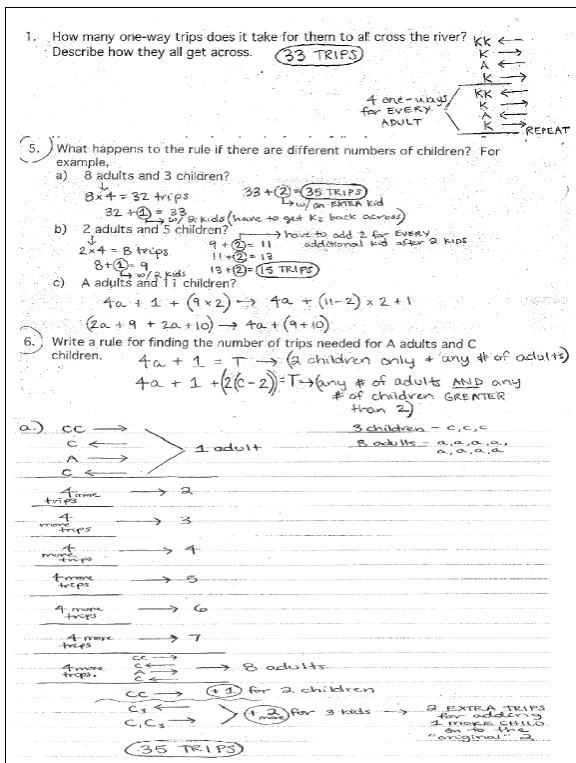 1. How many one-way trips does it take for them to all cross the river?
Describe how they all get across. 33 TRIPS
KK ←
K →
A ←
K →
KK ←
K →
A ←
K → REPEAT
4 one-ways
for EVERY
ADULT
5. What happens to the rule if there are different numbers of children? For
example,
a) 8 adults and 3 children?
↓
8x4 = 32 trips
33 + 2 = 35 TRIPS
↳ w/ an EXTRA kid
32 + 1 = 33
↳ w/ 2 kids (have to get Ks back across)
b) 2 adults and 5 children?
↓
→ have to add 2 for EVERY
additional kid after 2 KIDS
2x4 = 8 trips
9 + 2 = 11
8 + 1 = 9
11 + 2 = 13
↳ w/2 kids
13 + 2 = 15 TRIPS
c) A adults and 11 children?
4a + 1 + (9x2) → 4a + (11-2) x 2 + 1
(2a + 9 + 2a + 10) → 4a + (9+10)
6. Write a rule for finding the number of trips needed for A adults and C
children.
4a + 1 = T → (2 children only + any # of adults)
4a + 1 + (2(c-2)) = T → (any # of adults AND any
# of children GREATER
than 2)
a.) CC →
C ←
A →
C ←
1 adult
3 children - c,c,c
8 adults - a,a,a,a,
a,a,a,a
4 more trips → 2
4 more trips → 3
4 more trips → 4
4 more trips → 5
4 more trips → 6
4 more trips → 7
4 more trips.
CC →
C ←
A →
C ←
→ 8 adults
CC → +1 for 2 children
C₃ ←
C, C₃ →
+2 more for 3 kids → 2 EXTRA TRIPS
for adding
1 MORE CHILD
on to the
"original" 2
35 TRIPS